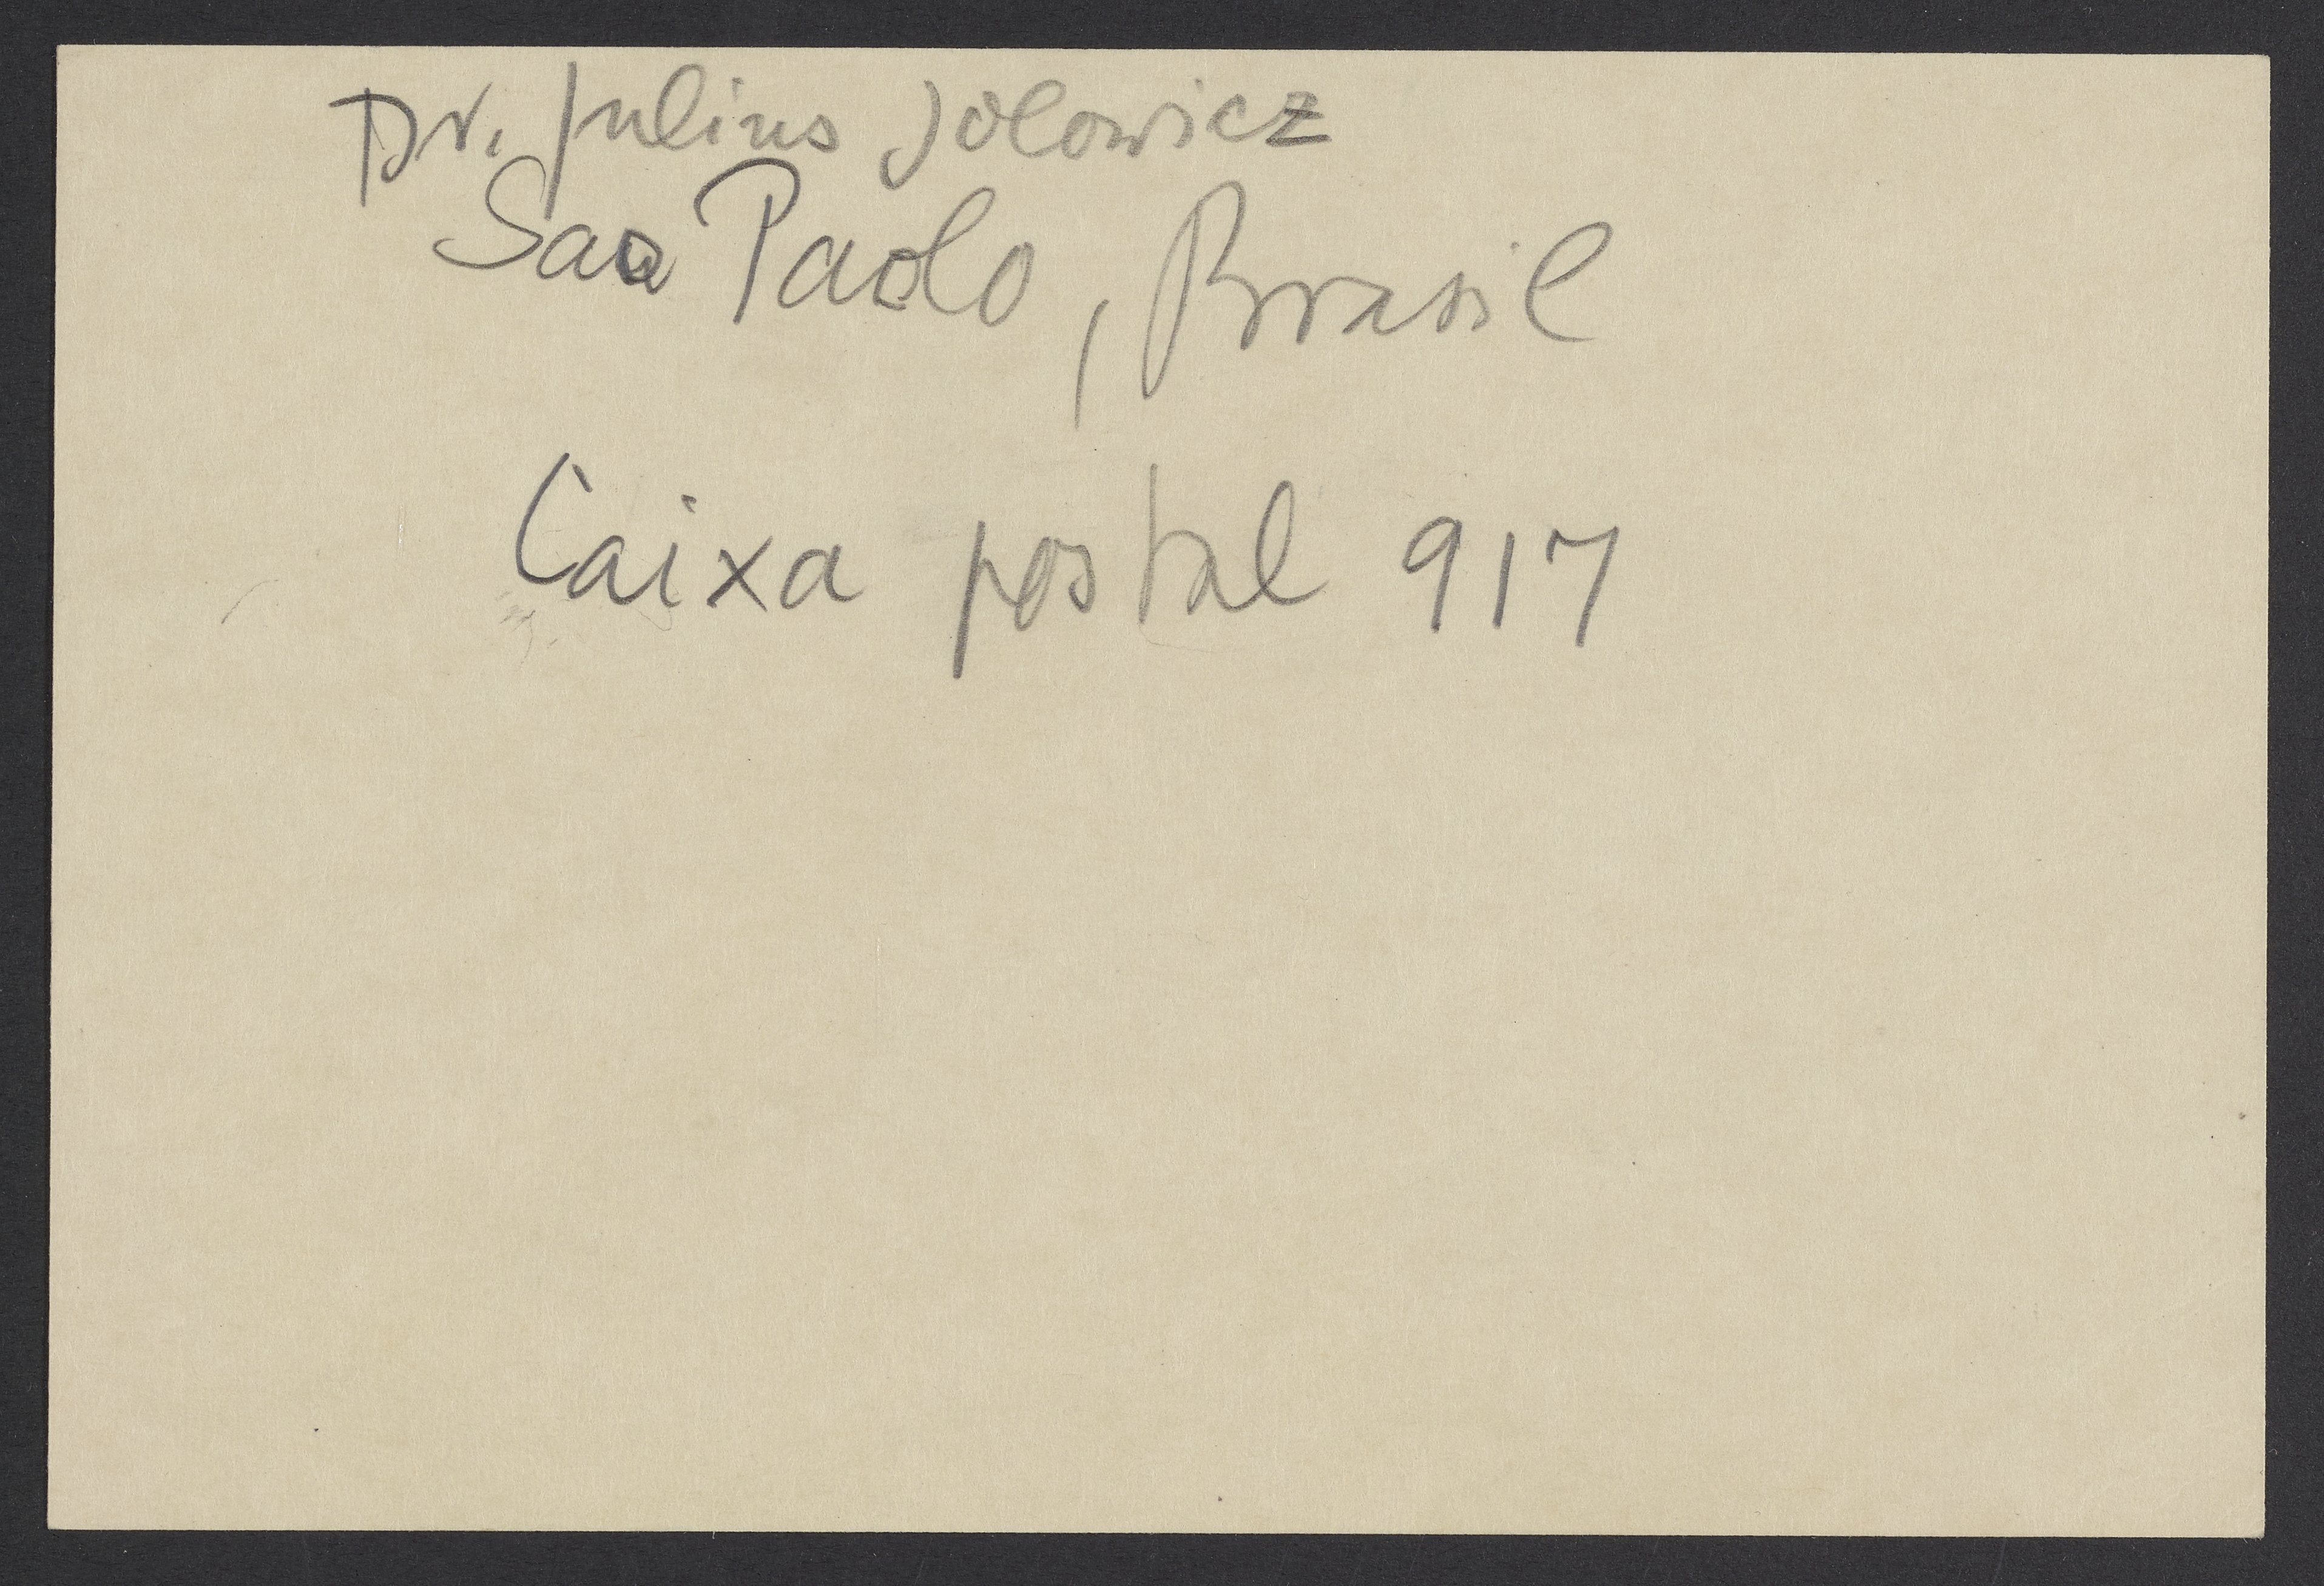 Dr. Julius Jolowicz
Sao Paolo, Brasil
Caixa postal 917